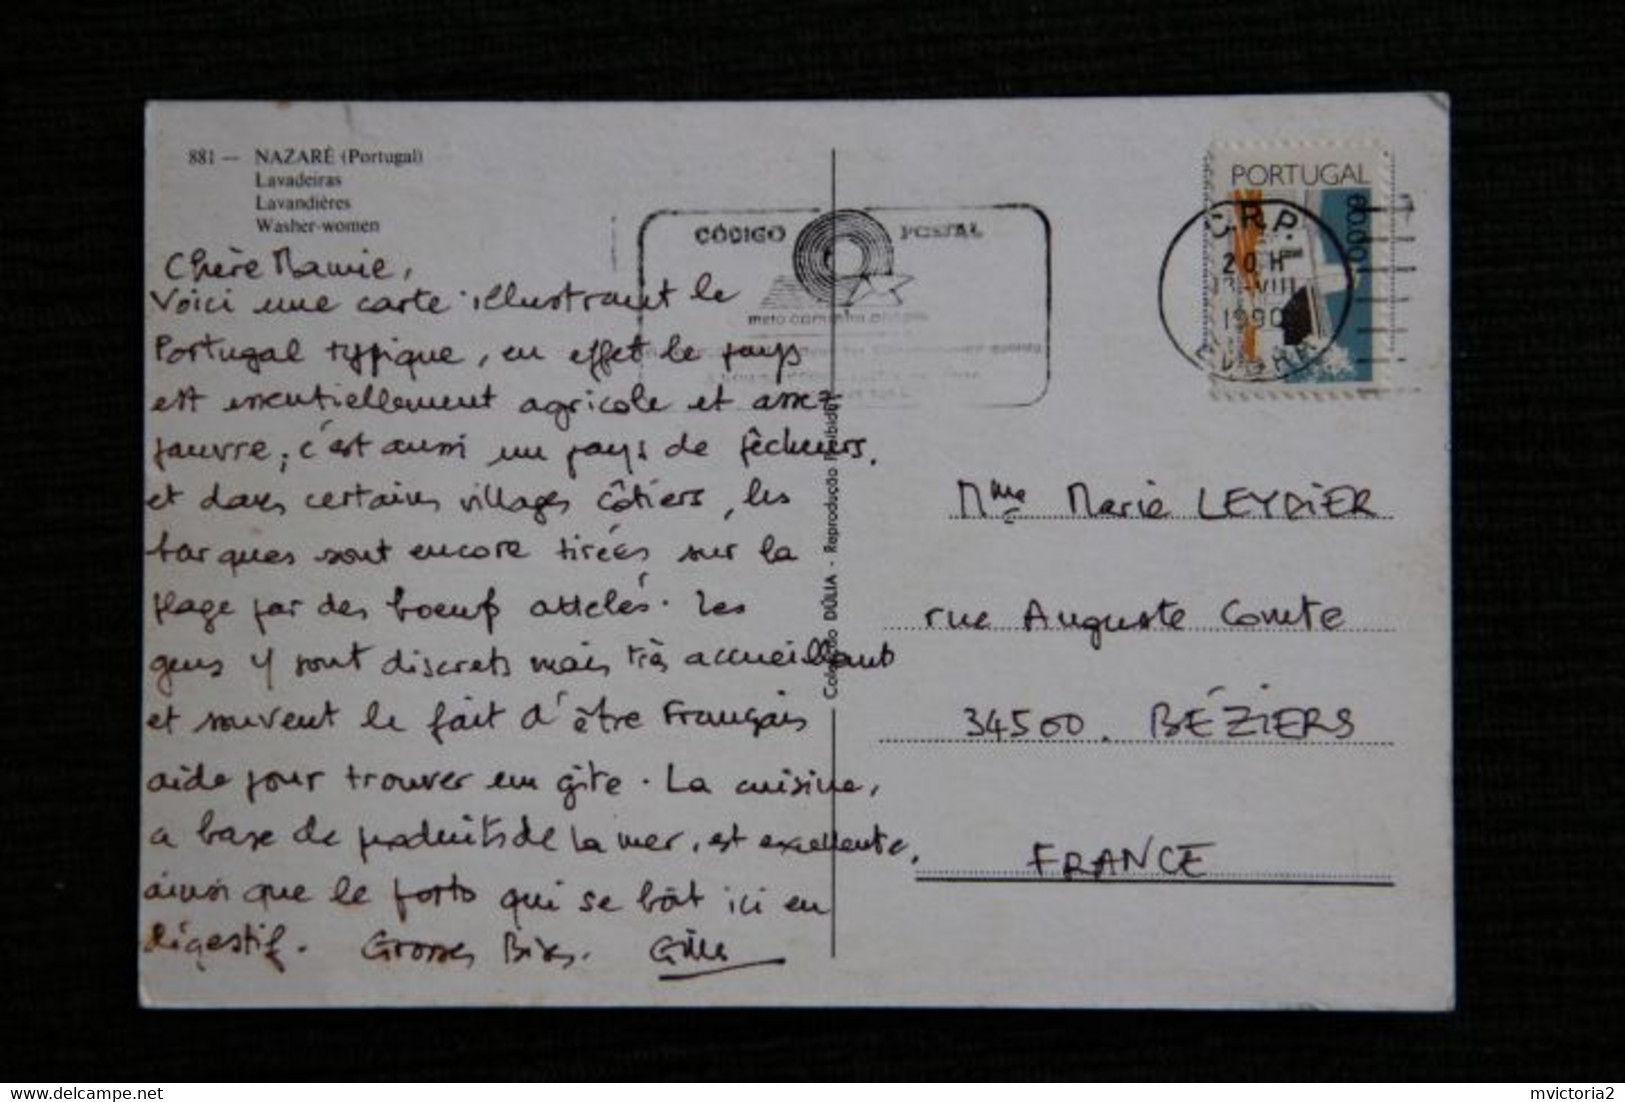 881 — NAZARÉ (Portugal)
Lavadeiras
Lavandières
Washer-women
Chère Mamie,
Voici une carte illustrant le
Portugal typique, en effet le pays
est essentiellement agricole et assez
pauvre, c'est aussi un pays de pêcheurs,
et dans certains villages côtiers, les
barques sont encore tirées sur la
plage par des boeufs attelés. Les
gens y sont discrets mais très accueillants
et souvent le fait d'être Français
aide pour trouver un gîte. La cuisine,
a base de produits de la mer, est excellente,
ainsi que le porto qui se boit ici en
digestif. Grosses Bises. Gilles
CÓDIGO POSTAL
meio caminho
Colecção DÚLIA - Reprodução Proibida
PORTUGAL
6000
C.R.P.
20 H
13 VIII
1990
ÉVORA
Mme Marie LEYDIER
rue Auguste Comte
34500. BÉZIERS
FRANCE
delcampe.net
mvictoria2